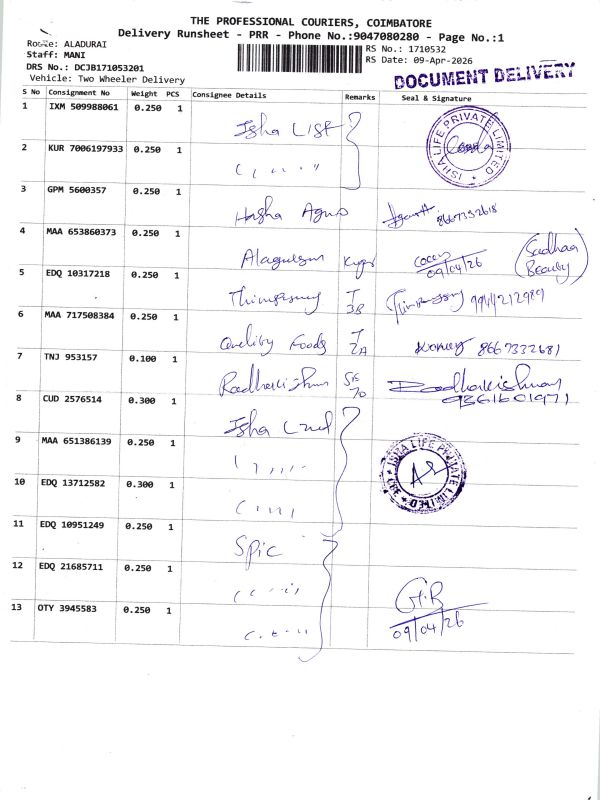 THE PROFESSIONAL COURIERS, COIMBATORE
Delivery Runsheet - PRR - Phone No.:9047080280 - Page No.:1
Route: ALADURAI
Staff: MANI
DRS No.: DCJB171053201
Vehicle: Two Wheeler Delivery
RS No.: 1710532
RS Date: 09-Apr-2026
DOCUMENT DELIVERY
S No Consignment No Weight PCS Consignee Details Remarks Seal & Signature
1 IXM 509988061 0.250 1 Isha
ISHA LIFE PRIVATE LIMITED
2 KUR 7006197933 0.250 1
3 GPM 5600357 0.250 1 8667332618
4 MAA 653860373 0.250 1 09/04/26 (Sadhaa Beauty)
5 EDQ 10317218 0.250 1 T 3B 9944212989
6 MAA 717508384 0.250 1 Quality Foods T 2A 8667332681
7 TNJ 953157 0.100 1 Radhakishnan 70 Radhakishnan 9361601971
8 CUD 2576514 0.300 1 Isha
9 MAA 651386139 0.250 1
ISHA LIFE PRIVATE LIMITED
10 EDQ 13712582 0.300 1
11 EDQ 10951249 0.250 1 Spic
12 EDQ 21685711 0.250 1
13 OTY 3945583 0.250 1 G.R
09/04/26